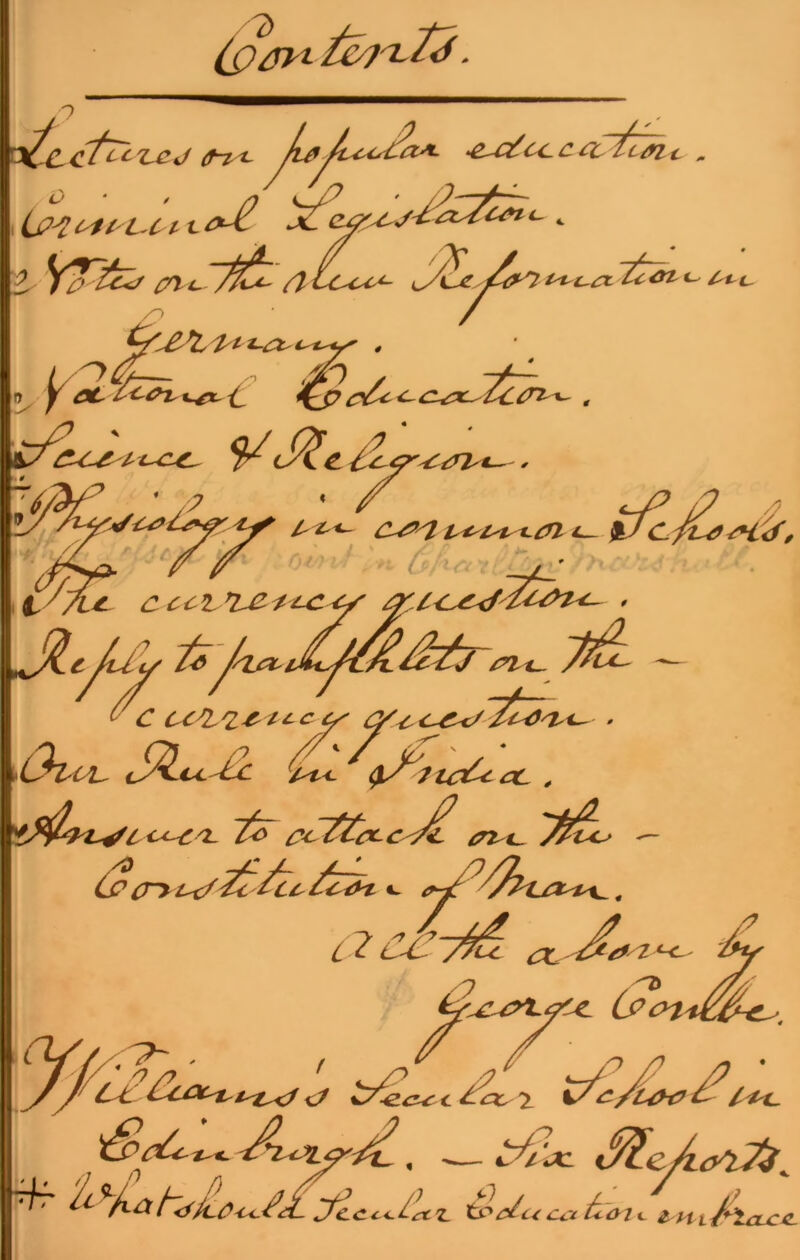 Contents.
Lectures on popular education.
Criminal Legislation.
Notes on the new Reformation in
Germany.
National Education.
Science & Religion.
Physiology in common Schools.
The currency question.
Reply to pamphlets on the –
currency question.
Our Rule in India.
Answer to attack on the –
Constitution of Man.
All the above by
George Combe.
Williams's Secular School in
Edinburgh. — Six Reports.
+ What should Secular Education embrace